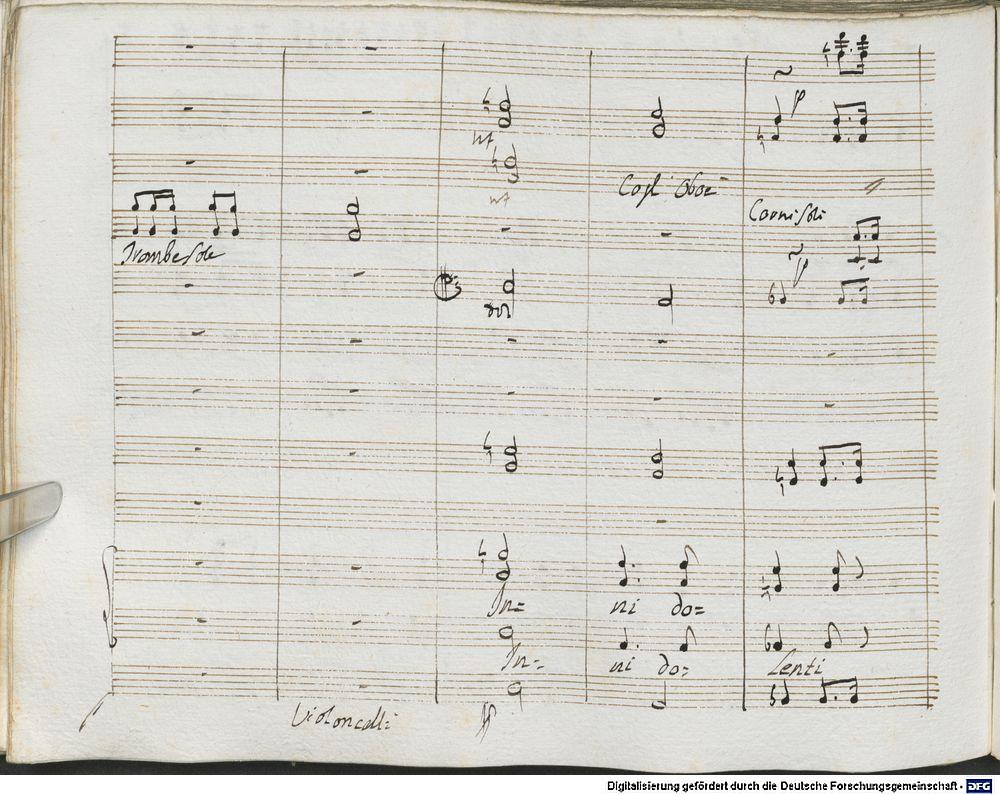 Cogl' Oboè
Corni soli
Trombe sole
dol
In=
ni do=
In=
ni do=
lenti
Violoncelli
Digitalisierung gefördert durch die Deutsche Forschungsgemeinschaft - DFG